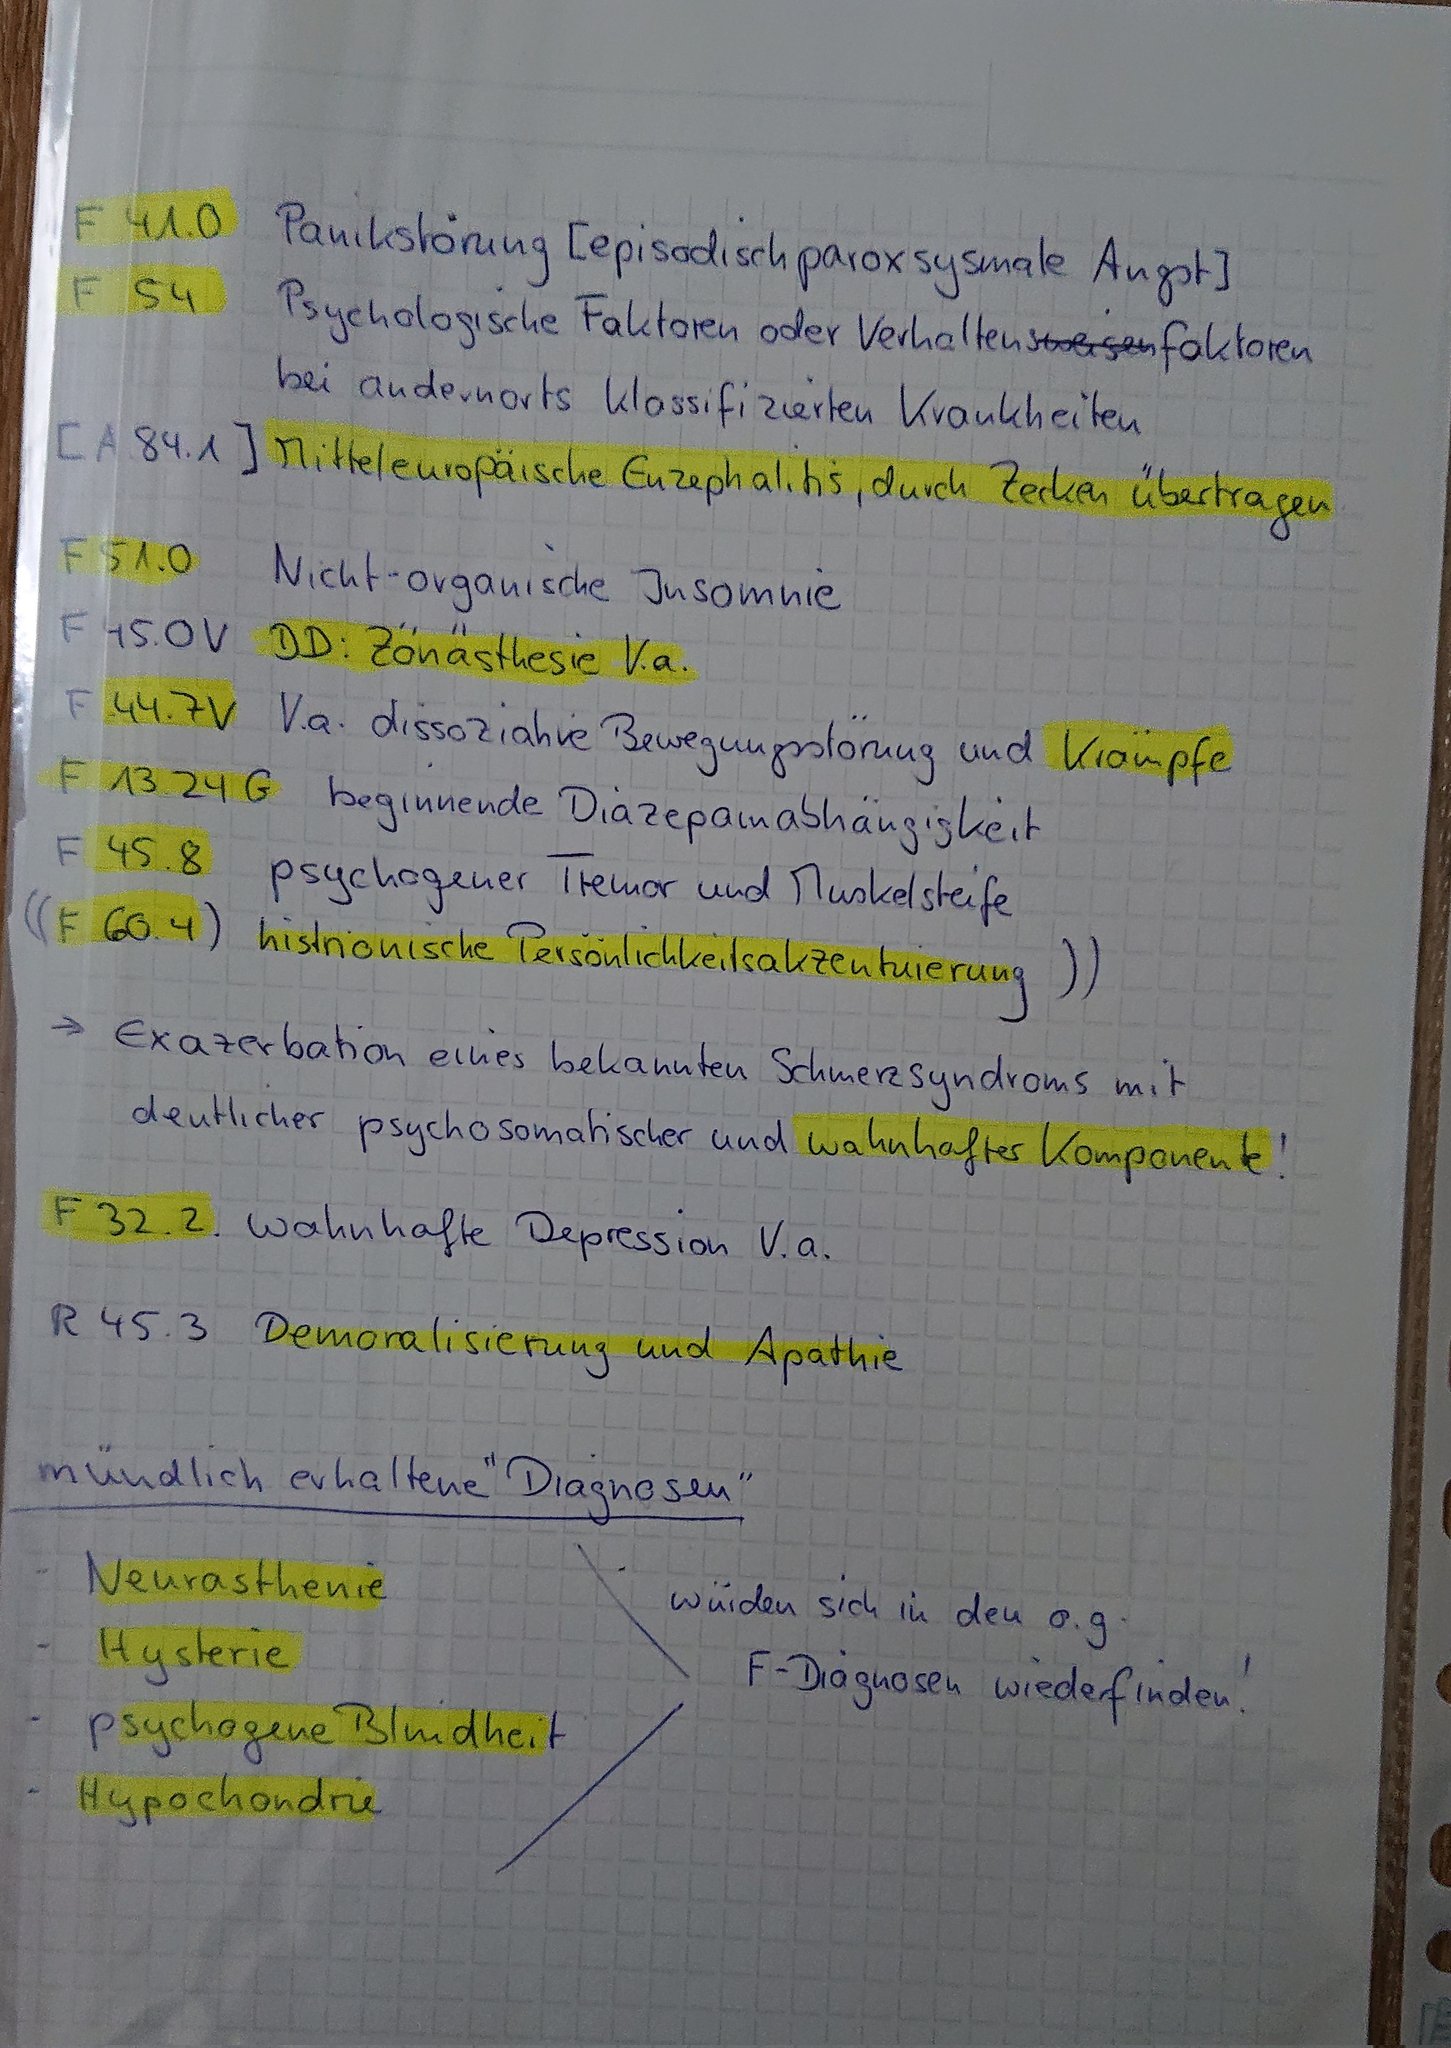 F 41.0 Panikstörung [episodisch paroxsysmale Angst]
F 54 Psychologische Faktoren oder Verhaltensweisenfaktoren
bei andernorts klassifizierten Krankheiten
[A 84.1] Mitteleuropäische Enzephalitis, durch Zecken übertragen
F 51.0 Nicht-organische Insomnie
F 45.0V DD: Zönästhesie V.a.
F 44.7V V.a. dissoziative Bewegungsstörung und Krämpfe
F 13.24 G beginnende Diazepamabhängigkeit
F 45.8 psychogener Tremor und Muskelsteife
((F 60.4) histrionische Persönlichkeitsakzentuierung ))
→ Exazerbation eines bekannten Schmerzsyndroms mit
deutlicher psychosomatischer und wahnhafter Komponente!
F 32.2. wahnhafte Depression V.a.
R 45.3 Demoralisierung und Apathie
mündlich erhaltene "Diagnosen"
- Neurasthenie
- Hysterie
- psychogene Blindheit
- Hypochondrie
würden sich in den o.g.
F-Diagnosen wiederfinden!